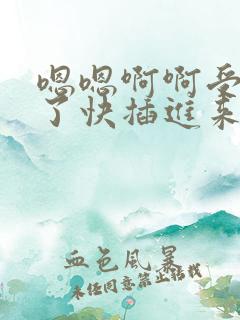 嗯嗯啊啊受
了快插进来
血色风暴
未经同意禁止转载